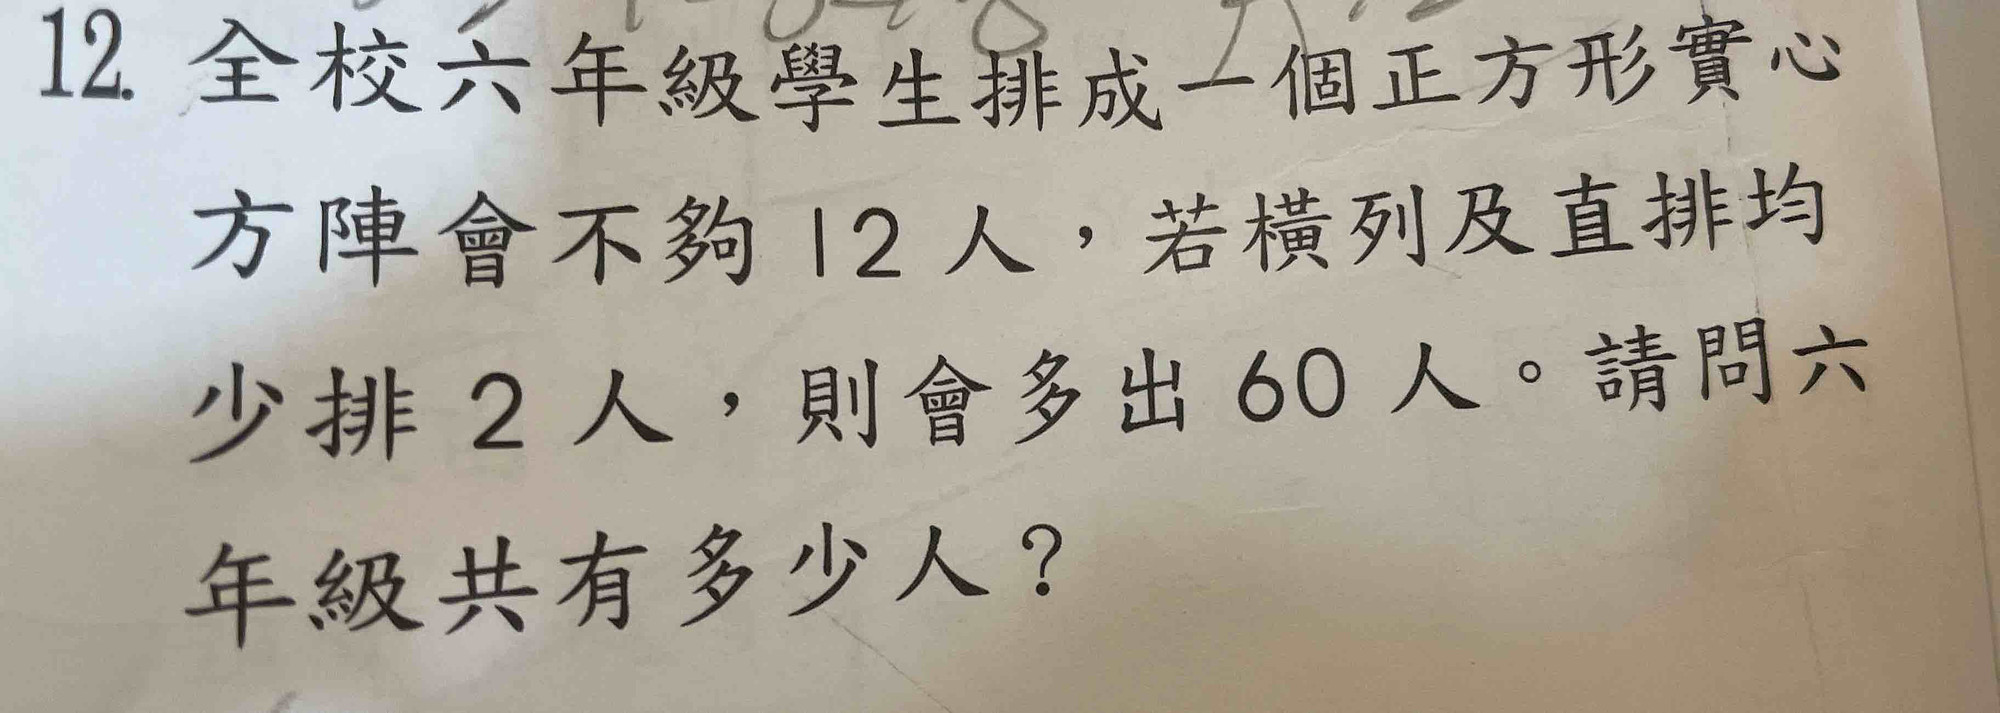 12. 全校六年級學生排成一個正方形實心
方陣會不夠 12 人，若橫列及直排均
少排 2 人，則會多出 60 人。請問六
年級共有多少人？